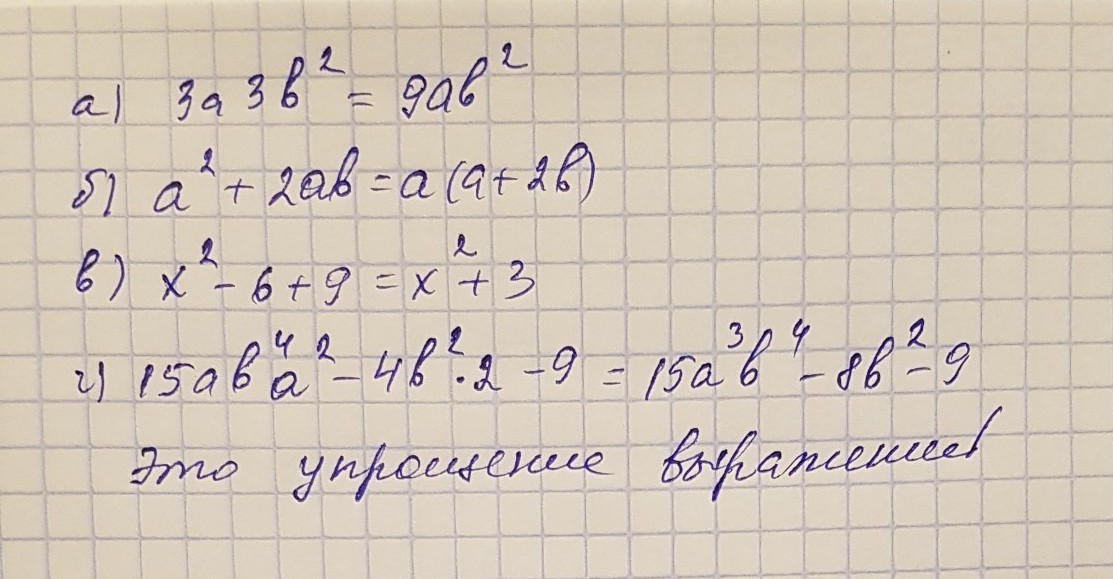 а) 3a 3b² = 9ab²
б) a² + 2ab = a(a + 2b)
в) x² - 6 + 9 = x² + 3
г) 15ab⁴a² - 4b²·2 - 9 = 15a³b⁴ - 8b² - 9
Это упрощение выражений